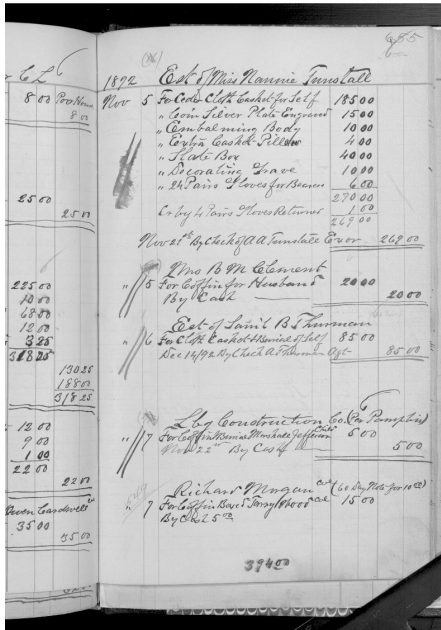 r C L
8 00 Por Home
8 00
25 00
25 00
225 00
10 00
68 00
12 00
3 25
318 25
130 25
188 00
318 25
12 00
9 00
1 00
22 00
22 00
Cardwell
35 00
35 00
655
1892 Est of Miss Nannie Tunstall
Nov 5 For Cloth Casket for Self 185 00
" Coin Silver Plate Engraved 15 00
" Embalming Body 10 00
" Extra Casket Pillow 4 00
" Slate Box 40 00
" Decorating Grave 10 00
" 24 Pairs Gloves for Bearers 6 00
270 00
Cr by 4 Pairs Gloves Returned 1 00
269 00
Nov 21st By Check of A A Tunstall Exor 269 00
Mrs B M Clement
" 5 For Coffin for Husband 20 00
By Cash 20 00
Est of Saml B Thurman
" 6 For Cloth Casket & Burial of Self 85 00
Dec 14/92 By Check A Thurman Agt 85 00
Lbg Construction Co (Per Pamplin)
" 7 For Coffin & Burial Marshall Jefferson Cold 5 00
Nov 22nd By Cash 5 00
Richard Morgan Col (60 Day Note for 10 00)
" 7 For Coffin Box & Terry Wood Col 15 00
By Cash 5 00
394 00